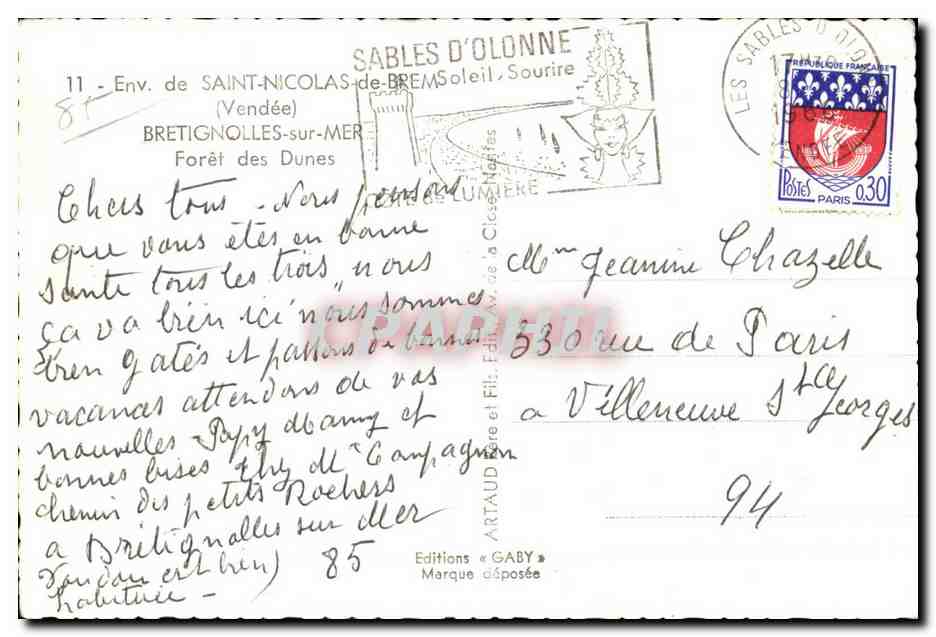 11 - Env. de SAINT-NICOLAS-de-BREM
(Vendée)
BRETIGNOLLES-sur-MER
Forêt des Dunes
SABLES D'OLONNE
Soleil, Sourire
LUMIÈRE
LES SABLES D'OLO
RÉPUBLIQUE FRANÇAISE
POSTES
PARIS
0,30
Chers tous - Nous pensons
que vous êtes en bonne
santé tous les trois, nous
ça va bien ici nous sommes
bien gatés et passons de bonnes
vacances attendons de vos
nouvelles - Papy Mamy et
bonnes bises chez Mme Compagnon
chemin des petits Rochers
a Brétignolles sur Mer
85
est bien)
habituée -
Mme Jeanine Chazelle
330 rue de Paris
a Villeneuve St Georges
94
ARTAUD Père et Fils, Edit., Av. de la Close, Nantes
Editions « GABY »
Marque déposée
CPAPHIL